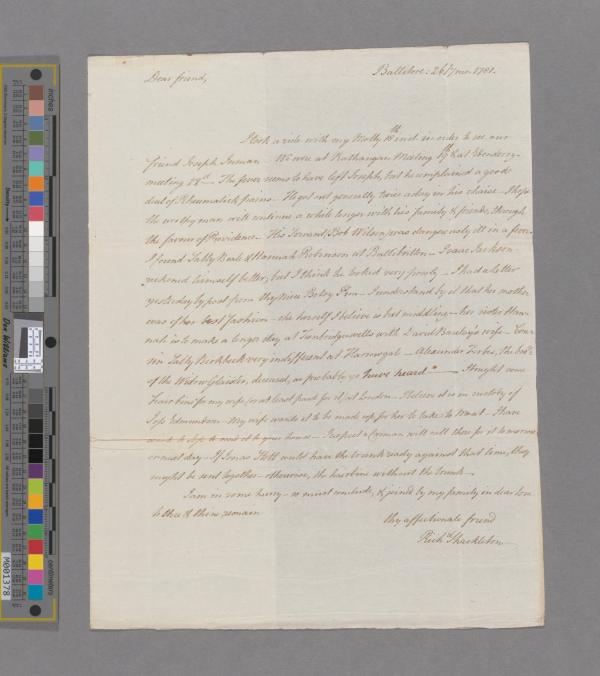 Dear friend,
Ballitore: 26/7mo. 1781.
I took a ride with my Molly 18th inst. in order to see our
friend Joseph Inman — We were at Rathangan Meeting 19th & at Edenderry
meeting 22d — The fever seems to have left Joseph, but he complained a good
deal of Rheumatick pains — He got out generally twice a day in his chaise — I hope
the worthy man will continue a while longer with his family & friends, through
the favour of Providence — His Servant, Bob Wilson, was dangerously ill in a fever.
I found Sally Beale & Hannah Robinson at Ballibritten — Isaac Jackson
reckoned himself better, but I think he looked very poorly — I had a letter
yesterday by post from thy Niece Betsy Pim — I understand by it that her mother
was of her best fashion — she herself I believe is but middling — her sister Han-
nah is to make a longer stay at Tunbridge wells with David Barclay's wife — Cou-
sin Sally Birkbeck very indifferent at Harrowgate — Alexander Forbes, the husbd
of the Widow deceased, as probably ye have heard — I bought some
for my wife, or at least paid for it, at London — I believe it is in custody of
Joss Edmundson — My wife wants it to be made up for her to take to Moat — I have
to it to your house — I expect a carman will call there for it to morrow
or next day — If Jonas Stott could have the trunk ready against that time, they
might be sent together — otherwise, the without the trunk —
I am in some hurry — so must conclude, & joined by my family in dear love
to thee & thine remain
thy affectionate friend
Richd Shackleton
inches
centimetres
Density
Don Williams
M001378